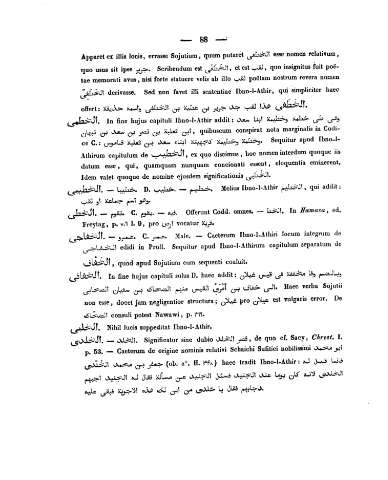 — 88 —
Apparet ex illis locis, errasse Sojutium, quum putaret الخَطَفَى esse nomen relativum,
quo usus sit ipse جرير. Scribendum est الخَطَفَى, et لقب est, quo insignitus fuit poë-
tae memorati avus, nisi forte statuere velis ab illo لقب poëtam nostrum revera nomen
الخَطَفَى derivasse. Sed non favet illi sententiae Ibno-l-Athir, qui simpliciter haec
offert: الخَطَفَى هذا لقب جد جرير بن عطية بن الخطفى واسمه حذيفة.
الخَطْمِى. — In fine hujus capituli Ibno-l-Athir addit: وفى طى خطمة وخطيمة ابنا سعد
ابن ثعلبة بن نصر بن سعد بن نبهان, quibuscum conspirat nota marginalis in Codi-
ce C.: قاموس وخطمة وخطيمة كجهينة ابناء سعد بن ثعلبة. Sequitur apud Ibno-l-
Athirum capitulum de الخطيب, ex quo discimus, hoc nomen interdum quoque iis
datum esse, qui, quamquam nunquam concionati essent, eloquentia eminerent.
Idem valet quoque de nomine ejusdem significationis الخطيبى.
الخطيمى. — خطيبا. D. خطيب. — خطيم. Melius Ibno-l-Athir الخطيم, qui addit:
وهو اسم جماعة او لقب.
الخَطِّى. — خط. C. يقوم. — يقوم. Offerunt Codd. omnes. — الخط. In Hamasa, ed.
Freytag, p. I. D, pro ارض vocatur قرية.
الخَفَاجِى. — عمرو. C. عمر. Male. — Caeterum Ibno-l-Athiri locum integrum de
الخفاجى edidi in Proll. Sequitur apud Ibno-l-Athirum capitulum separatum de
الخَفَّاف, quod apud Sojutium cum sequenti coaluit.
الخُفَافِى. — In fine hujus capituli solus D. haec addit: وبالضم والا مخففة فى قيس عيلان
الى خفاف بن امرئ القيس منهم الضحاك بن سفيان الصحابى. Haec verba Sujutii
non esse, docet jam negligentior structura; عيلان pro غيلان est vulgaris error. De
الضحاك consuli potest Nawawi, p.
الخلمى. Nihil lucis suppeditat Ibno-l-Athir.
الخُلْدِى. — الخلد. Significatur sine dubio قصر الخلد, de quo cf. Sacy, Chrest. I.
p. 52. — Caeterum de origine nominis relativi Schaichi Sufitici nobilissimi ابو محمد
جعفر بن محمد الخلدى (ob. aº. H. ) haec tradit Ibno-l-Athir: فانما قيل له
الخلدى لانه كان يوما عند الجنيد فسئل الجنيد عن مسألة فقال له الجنيد اجبهم
فاجابهم فقال يا خلدى من اين لك هذه الاجوبة فبقى عليه.